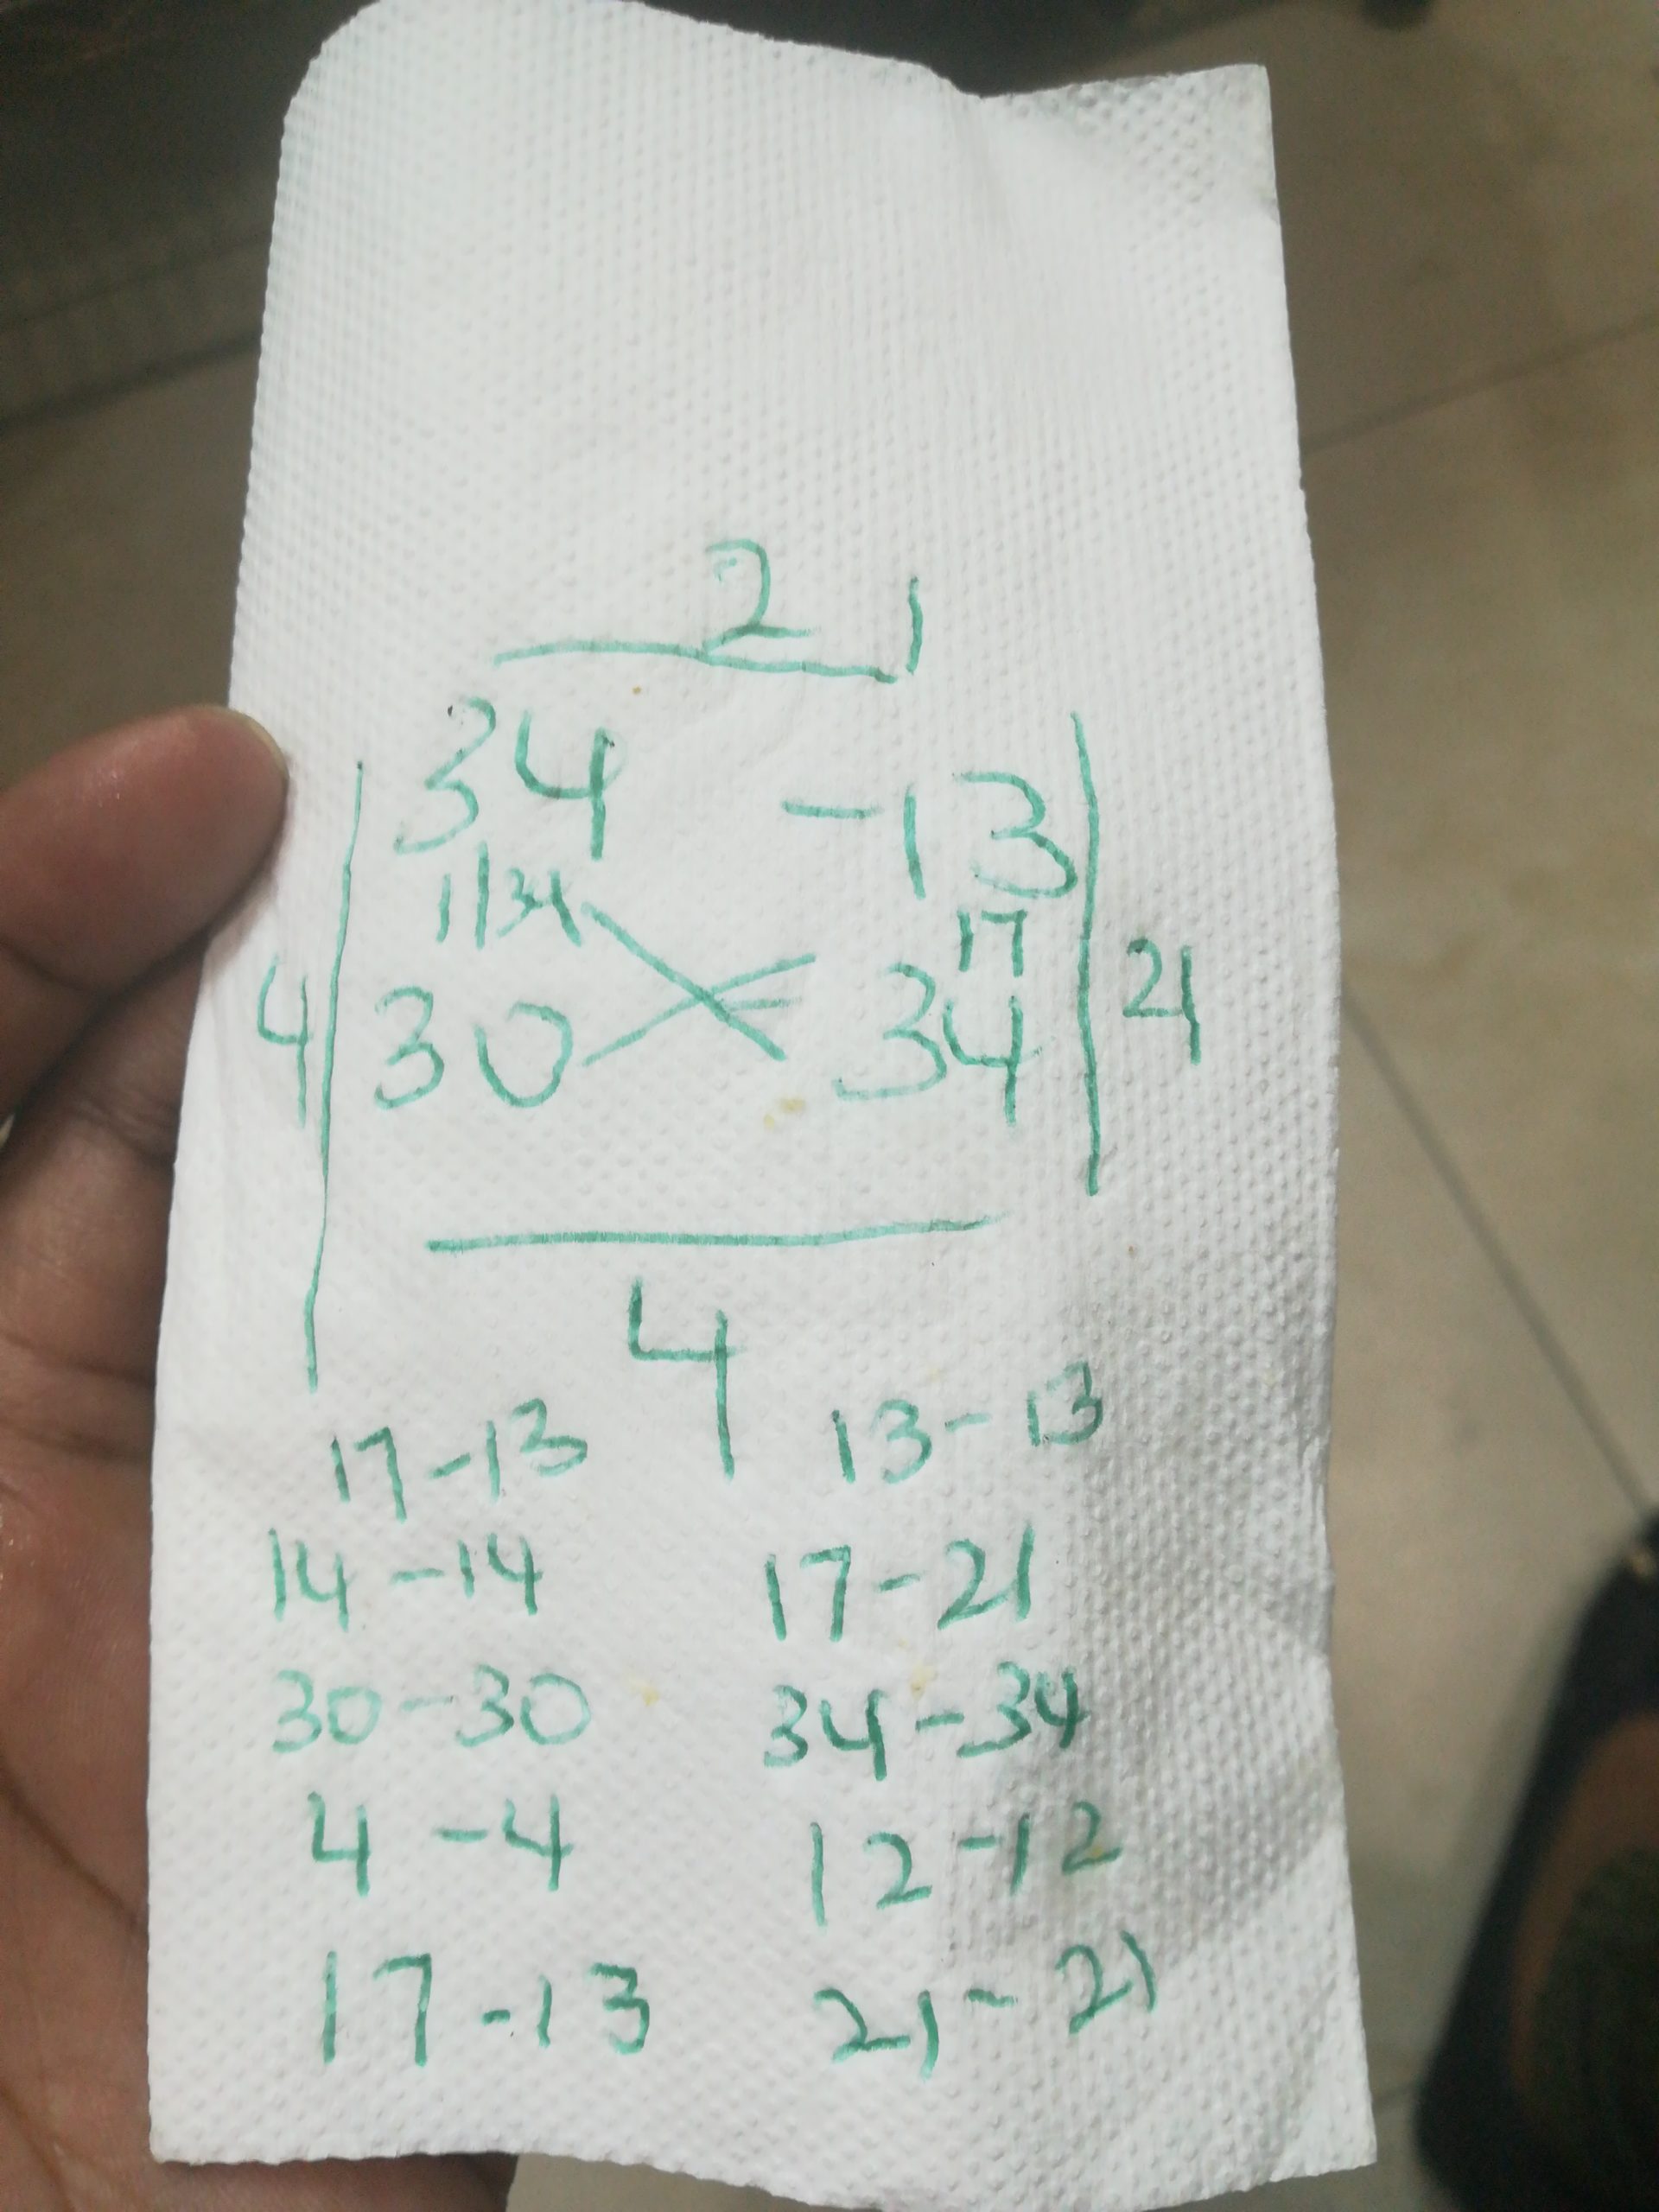 21
34 -13
11 34 17
4 30 34 21
4
17-13 13-13
14-14 17-21
30-30 34-34
4-4 12-12
17-13 21-21